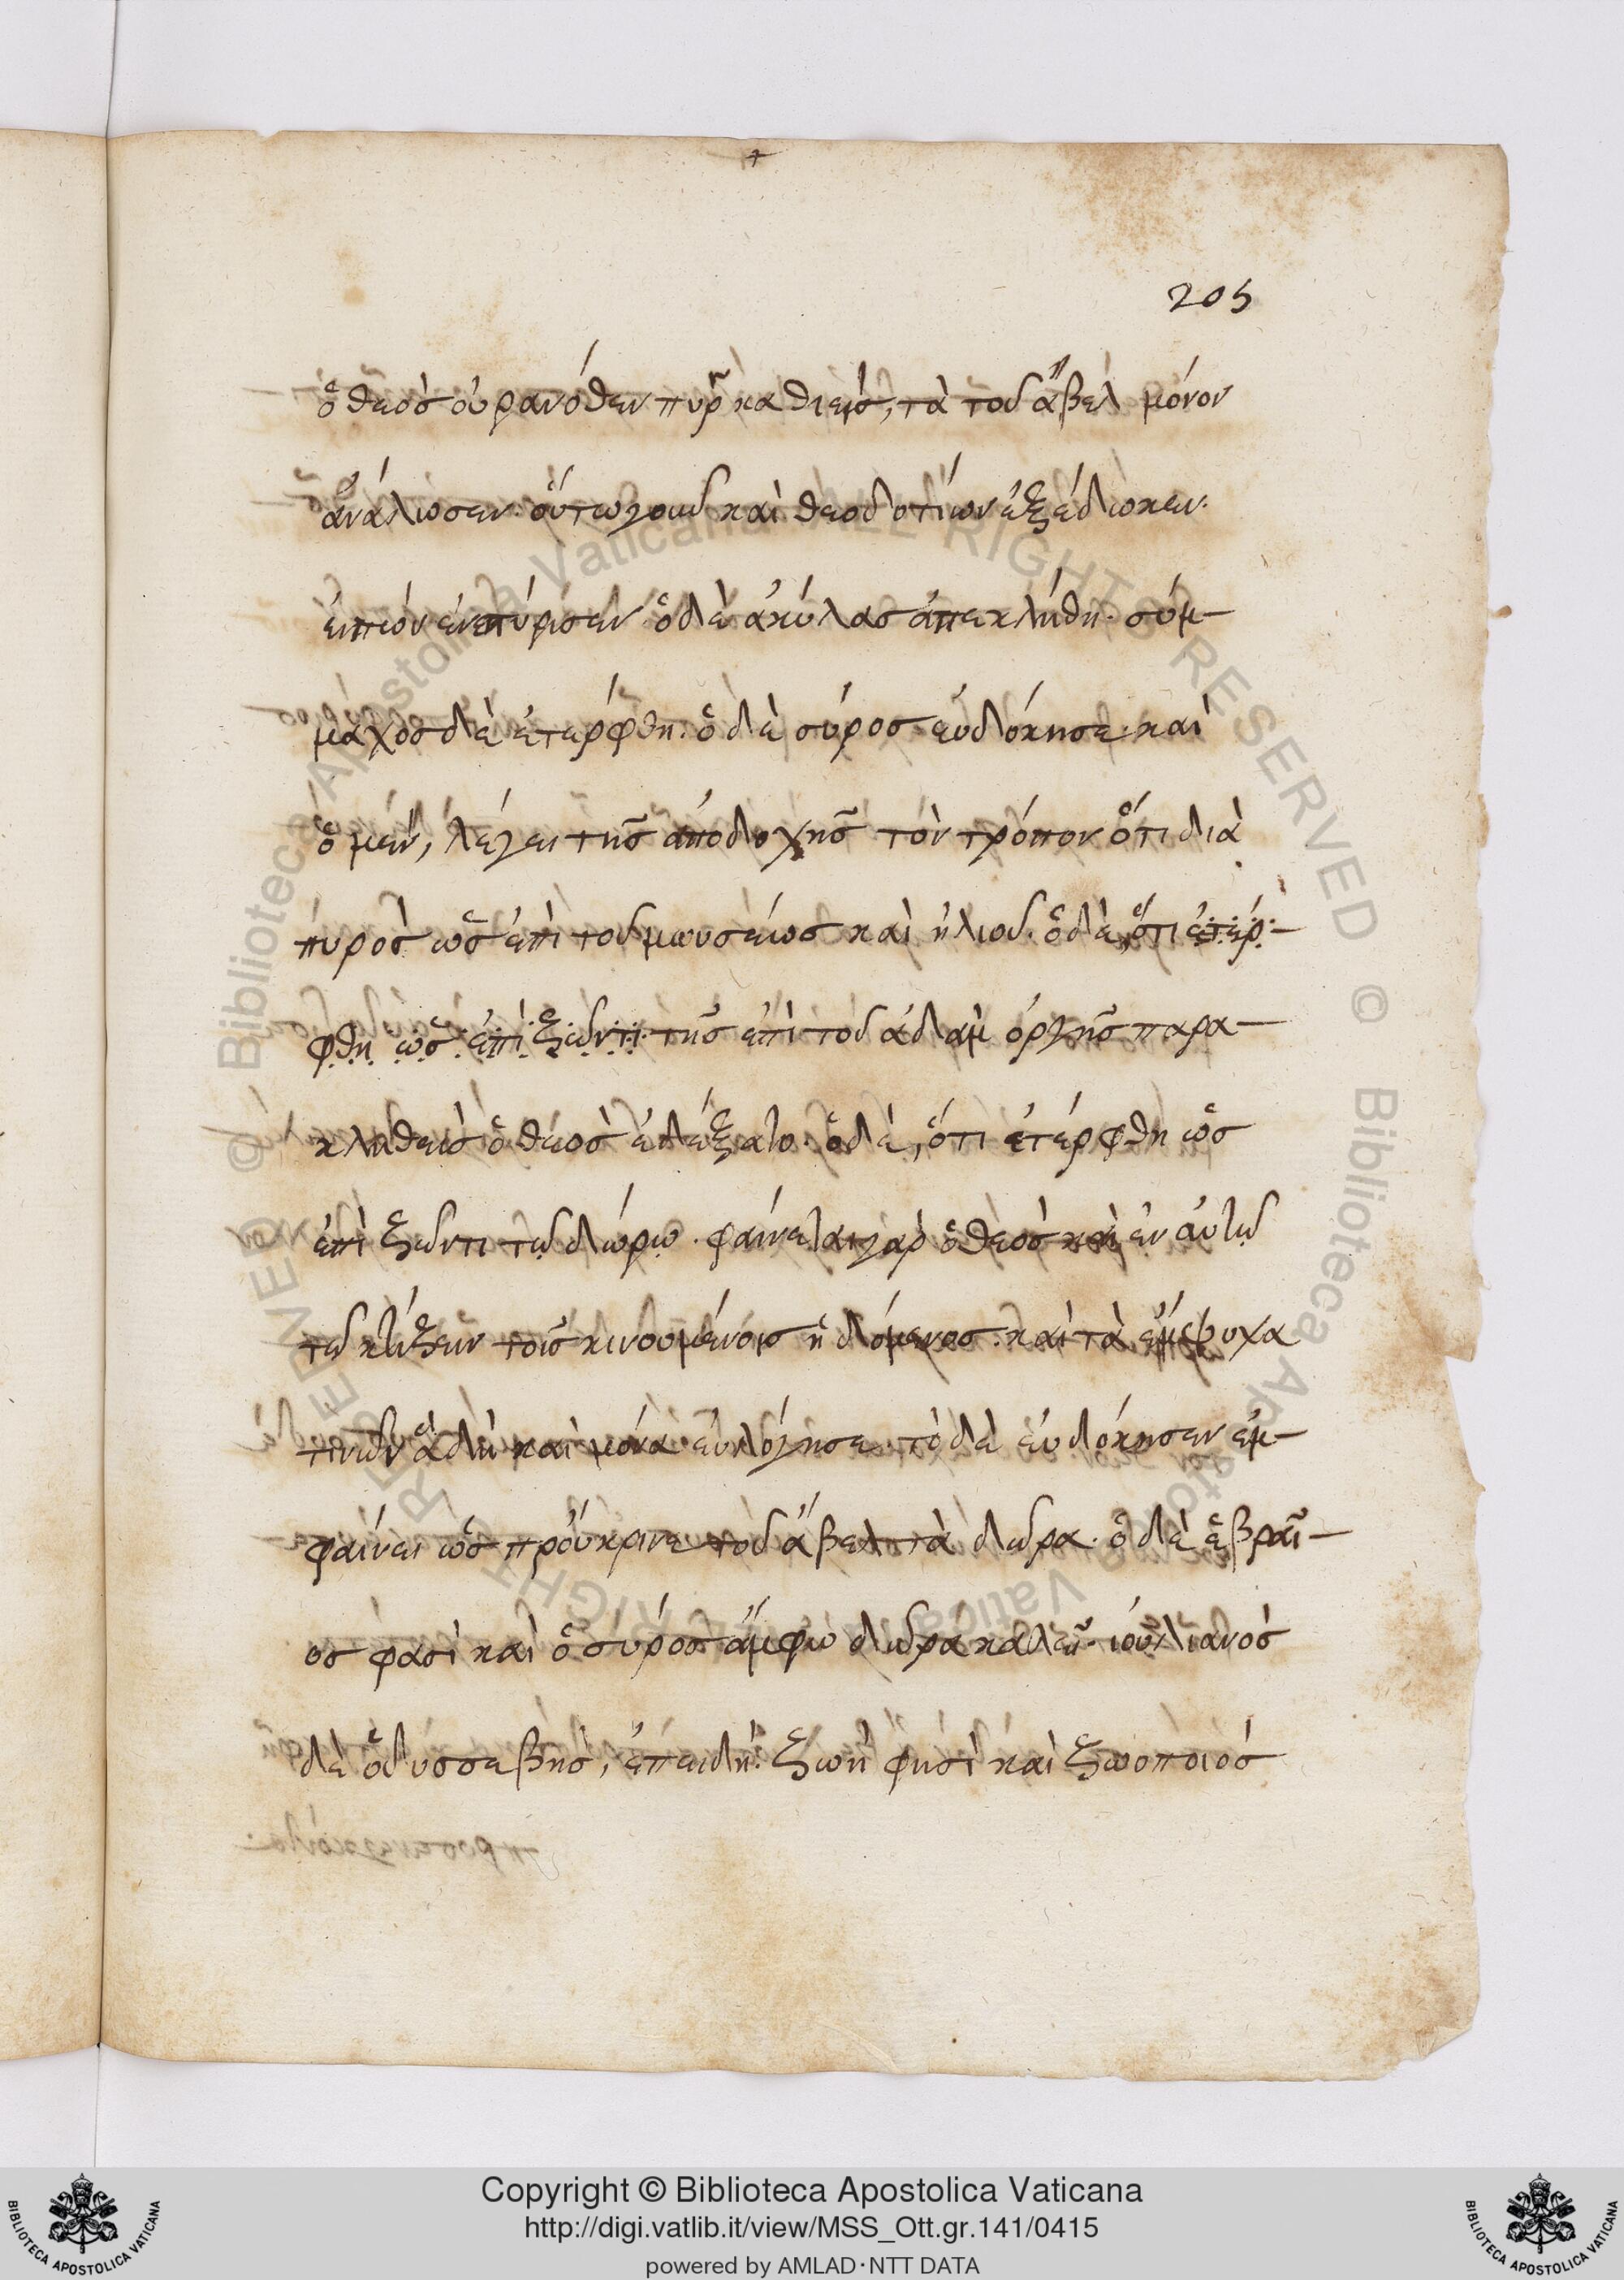 205
ὁ θεὸς οὐρανόθεν πῦρ καθιεὶς, τὰ τοῦ ἄβελ μόνον
ἀνάλωσεν. οὕτω γοῦν καὶ θεοδοτίων ἐξέδωκεν.
εἰπὼν ἐνεπύρισεν ὁ δὲ ἀκύλας ἐπεκλήθη. σύμ-
μαχος δὲ ἐτέρφθη. ὁ δὲ σύρος εὐδόκησε. καὶ
ὁ μὲν, λέγει τῆς ἀποδοχῆς τὸν τρόπον ὅτι διὰ
πυρὸς ὡς ἐπὶ τοῦ μωυσέως καὶ ἠλιοῦ. ὁ δὲ, ὅτι ἐτέρ-
φθη ὡς ἐπὶ ζῶντι τῆς ἐπὶ τοῦ ἀδὰμ ὀργῆς παρα-
κληθεὶς ὁ θεὸς ἐδέξατο. ὁ δὲ, ὅτι ἐτέρφθη ὡς
ἐπὶ ζῶντι τῷ δώρῳ. φαίνεται γὰρ ὁ θεὸς καὶ ἐν αὐτῷ
τῷ κτίζειν τοῖς κινουμένοις ἡδόμενος. καὶ τὰ ἔμψυχα
ἃ δὴ καὶ μόνα εὐλόγησε. τὸ δὲ εὐδόκησεν ἐμ-
φαίνει ὡς προύκρινε τοῦ ἄβελ τὰ δῶρα. ὁ δὲ ἑβραῖ-
ος φασὶ καὶ ὁ σύρος ἄμφω δῶρα καλεῖ. ἰουλιανὸς
δὲ ὁ δυσσεβὴς, ἐπειδὴ ζωὴ φησὶ καὶ ζωοποιὸς
Copyright © Biblioteca Apostolica Vaticana
http://digi.vatlib.it/view/MSS_Ott.gr.141/0415
powered by AMLAD·NTT DATA